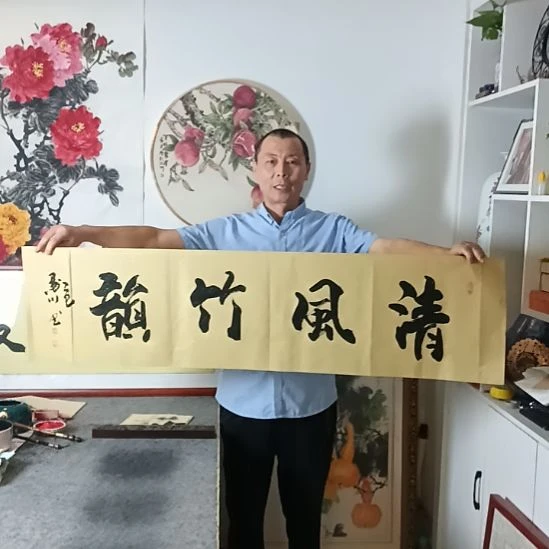 清風竹韻